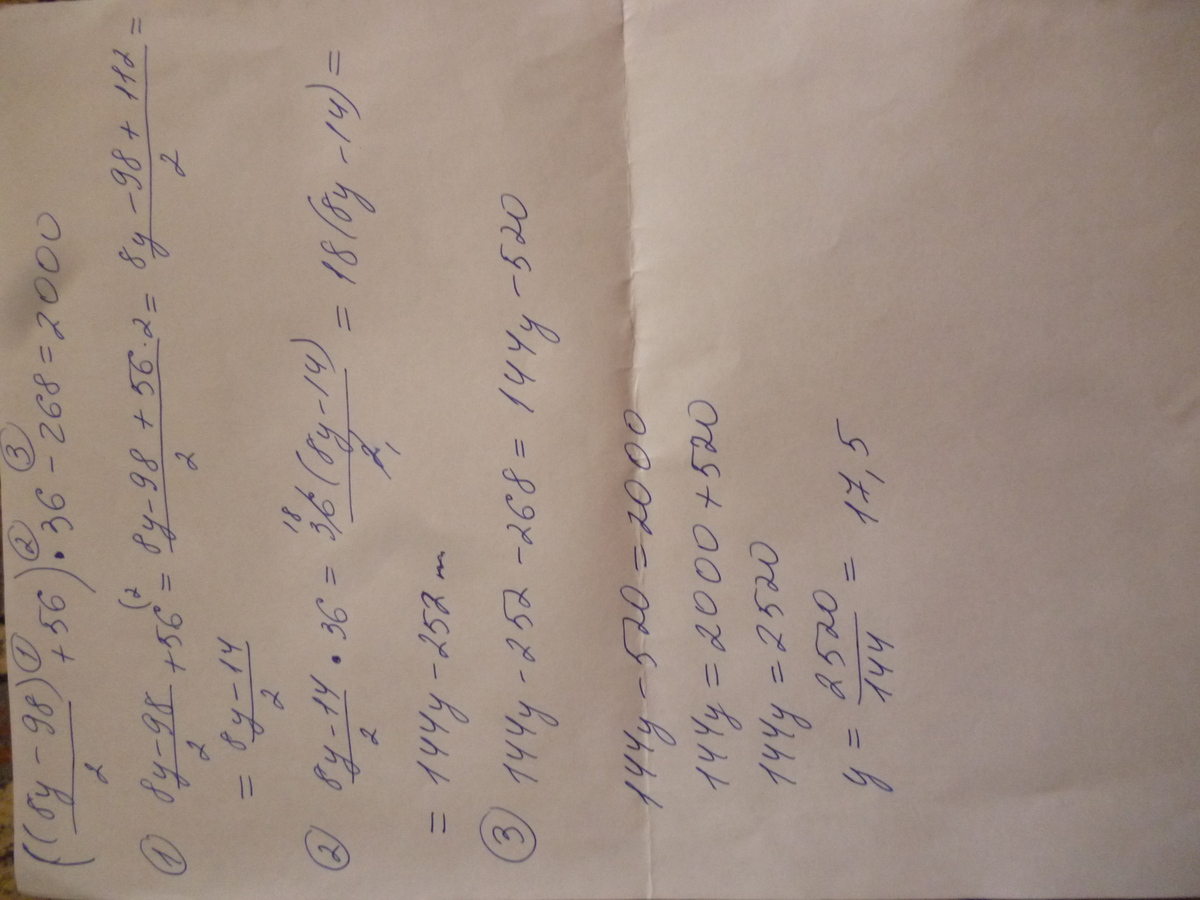 ((8y - 98)/2 + 56) · 36 - 268 = 2000
① ② ③
① (8y - 98)/2 + 56^(2 = (8y - 98 + 56 · 2)/2 = (8y - 98 + 112)/2 =
= (8y - 14)/2
② (8y - 14)/2 · 36 = 18 36(8y - 14)/2 1 = 18(8y - 14) =
= 144y - 252
③ 144y - 252 - 268 = 144y - 520
144y - 520 = 2000
144y = 2000 + 520
144y = 2520
y = 2520/144 = 17,5